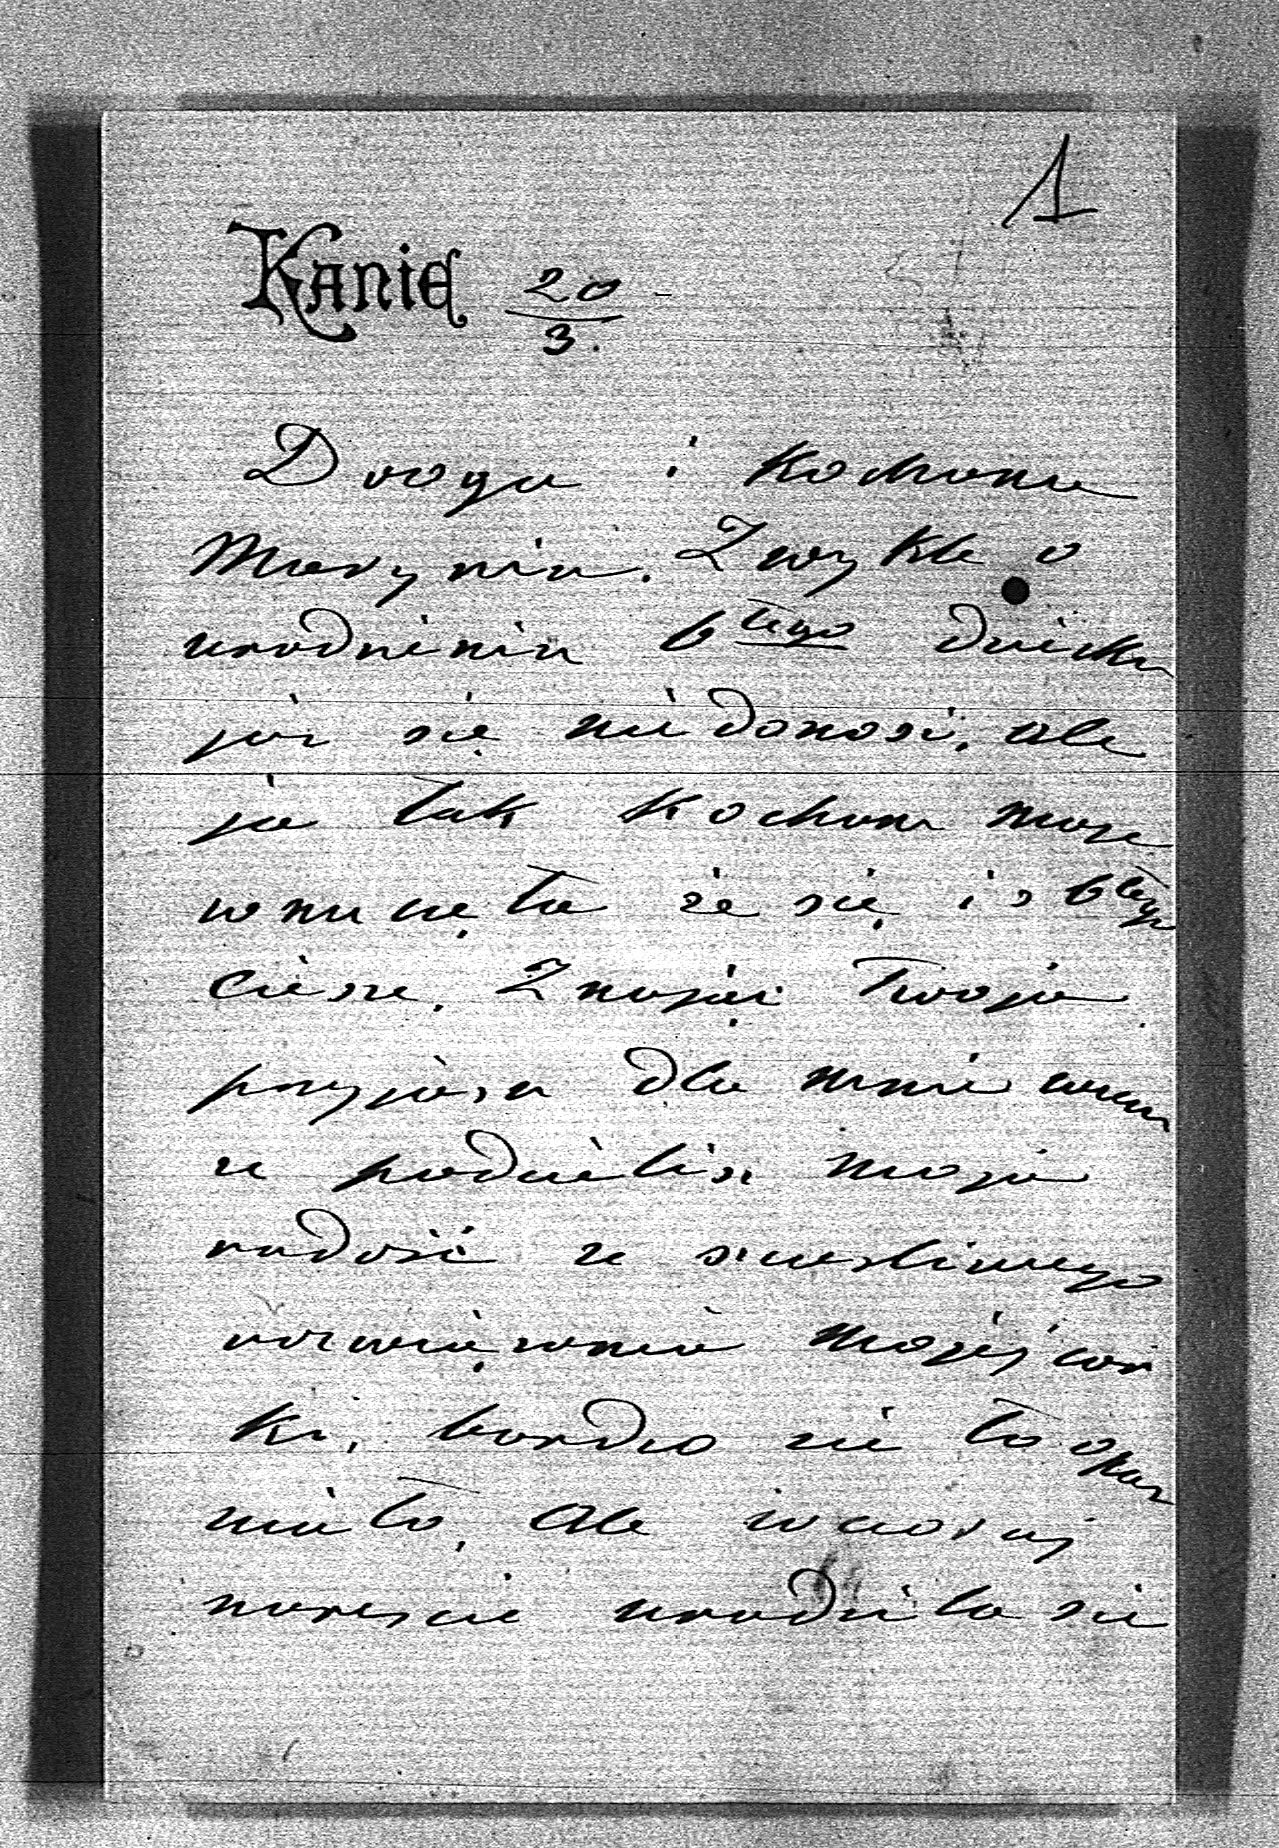 1
Kanię 20/3.
Droga i kochana
Maryniu. Zwykle o
urodzinin 6tego dziecka
już się nie donosi, ale
ja tak kocham moje
wnuczęta że się i o 6tego
cieszę. Znając Twoja
przyjaźń dla mnie
ze podzielisz moja
radość ze szczesliwego
rozwiązania mojéj cór
ki, bardzo sie to opuz
niało, ale wczoraj
nareszcie urodziła sie